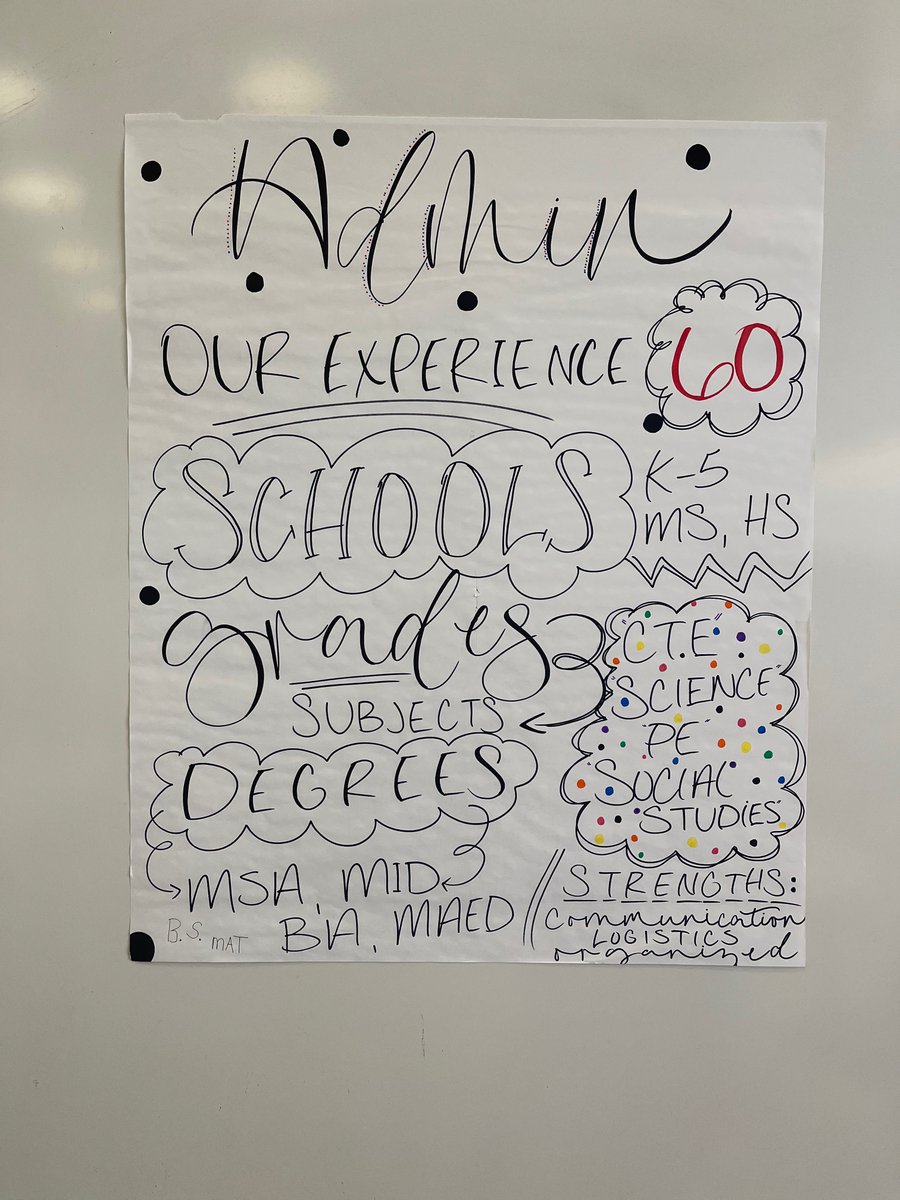 Admin
OUR EXPERIENCE 60
SCHOOLS K-5
MS, HS
grades
SUBJECTS
"C.T.E"
"SCIENCE"
"PE"
"SOCIAL
STUDIES"
DEGREES
MSA, MID
BA, MAED
B.S. MAT
STRENGTHS:
Communication
LOGISTICS
organized